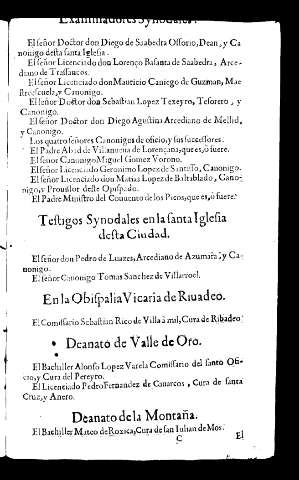 Examinadores Synodales.
El señor Doctor don Diego de Saabedra Ossorio, Dean, y Ca
nonigo desta santa Iglesia.
El señor Licenciado don Lorenço Basanta de Saabedra, Arce-
diano de Trastancos.
El señor Licenciado don Mauricio Caniego de Guzman, Mae
strescuela, y Canonigo.
El señor Doctor don Sebastian Lopez Texeyro, Tesorero, y
Canonigo.
El señor Doctor don Diego Agustin Arcediano de Mellid,
y Canonigo.
Los quatro señores Canonigos de oficio, y sus successores.
El Padre Abad de Villanueua de Lorençana; que es, ò fuere.
El señor Canonigo Miguel Gomez Vorono.
El señor Licenciado Geronimo Lopez de Santisso, Canonigo.
El señor Licenciado don Matias Lopez de Baltablado, Cano-
nigo, y Prouisor deste Obispado.
El Padre Ministro del Conuento de los Picos, que es, ò fuere.
Testigos Synodales en la santa Iglesia
desta Ciudad.
El señor don Pedro de Luazes, Arcediano de Azumara, y Ca-
nonigo.
El señor Canonigo Tomas Sanchez de Villarroel.
En la Obispalia Vicaria de Riuadeo.
El Comissario Sebastian Rico de Villa à mil, Cura de Ribadeo.
Deanato de Valle de Oro.
El Bachiller Alonso Lopez Varela Comissario del santo Ofi-
cio, y Cura del Pereyro.
El Licenciado Pedro Fernandez de Canarcos, Cura de santa
Cruz, y Anero.
Deanato de la Montaña.
El Bachiller Mateo de Roxica, Cura de san Iulian de Mos.
C
El